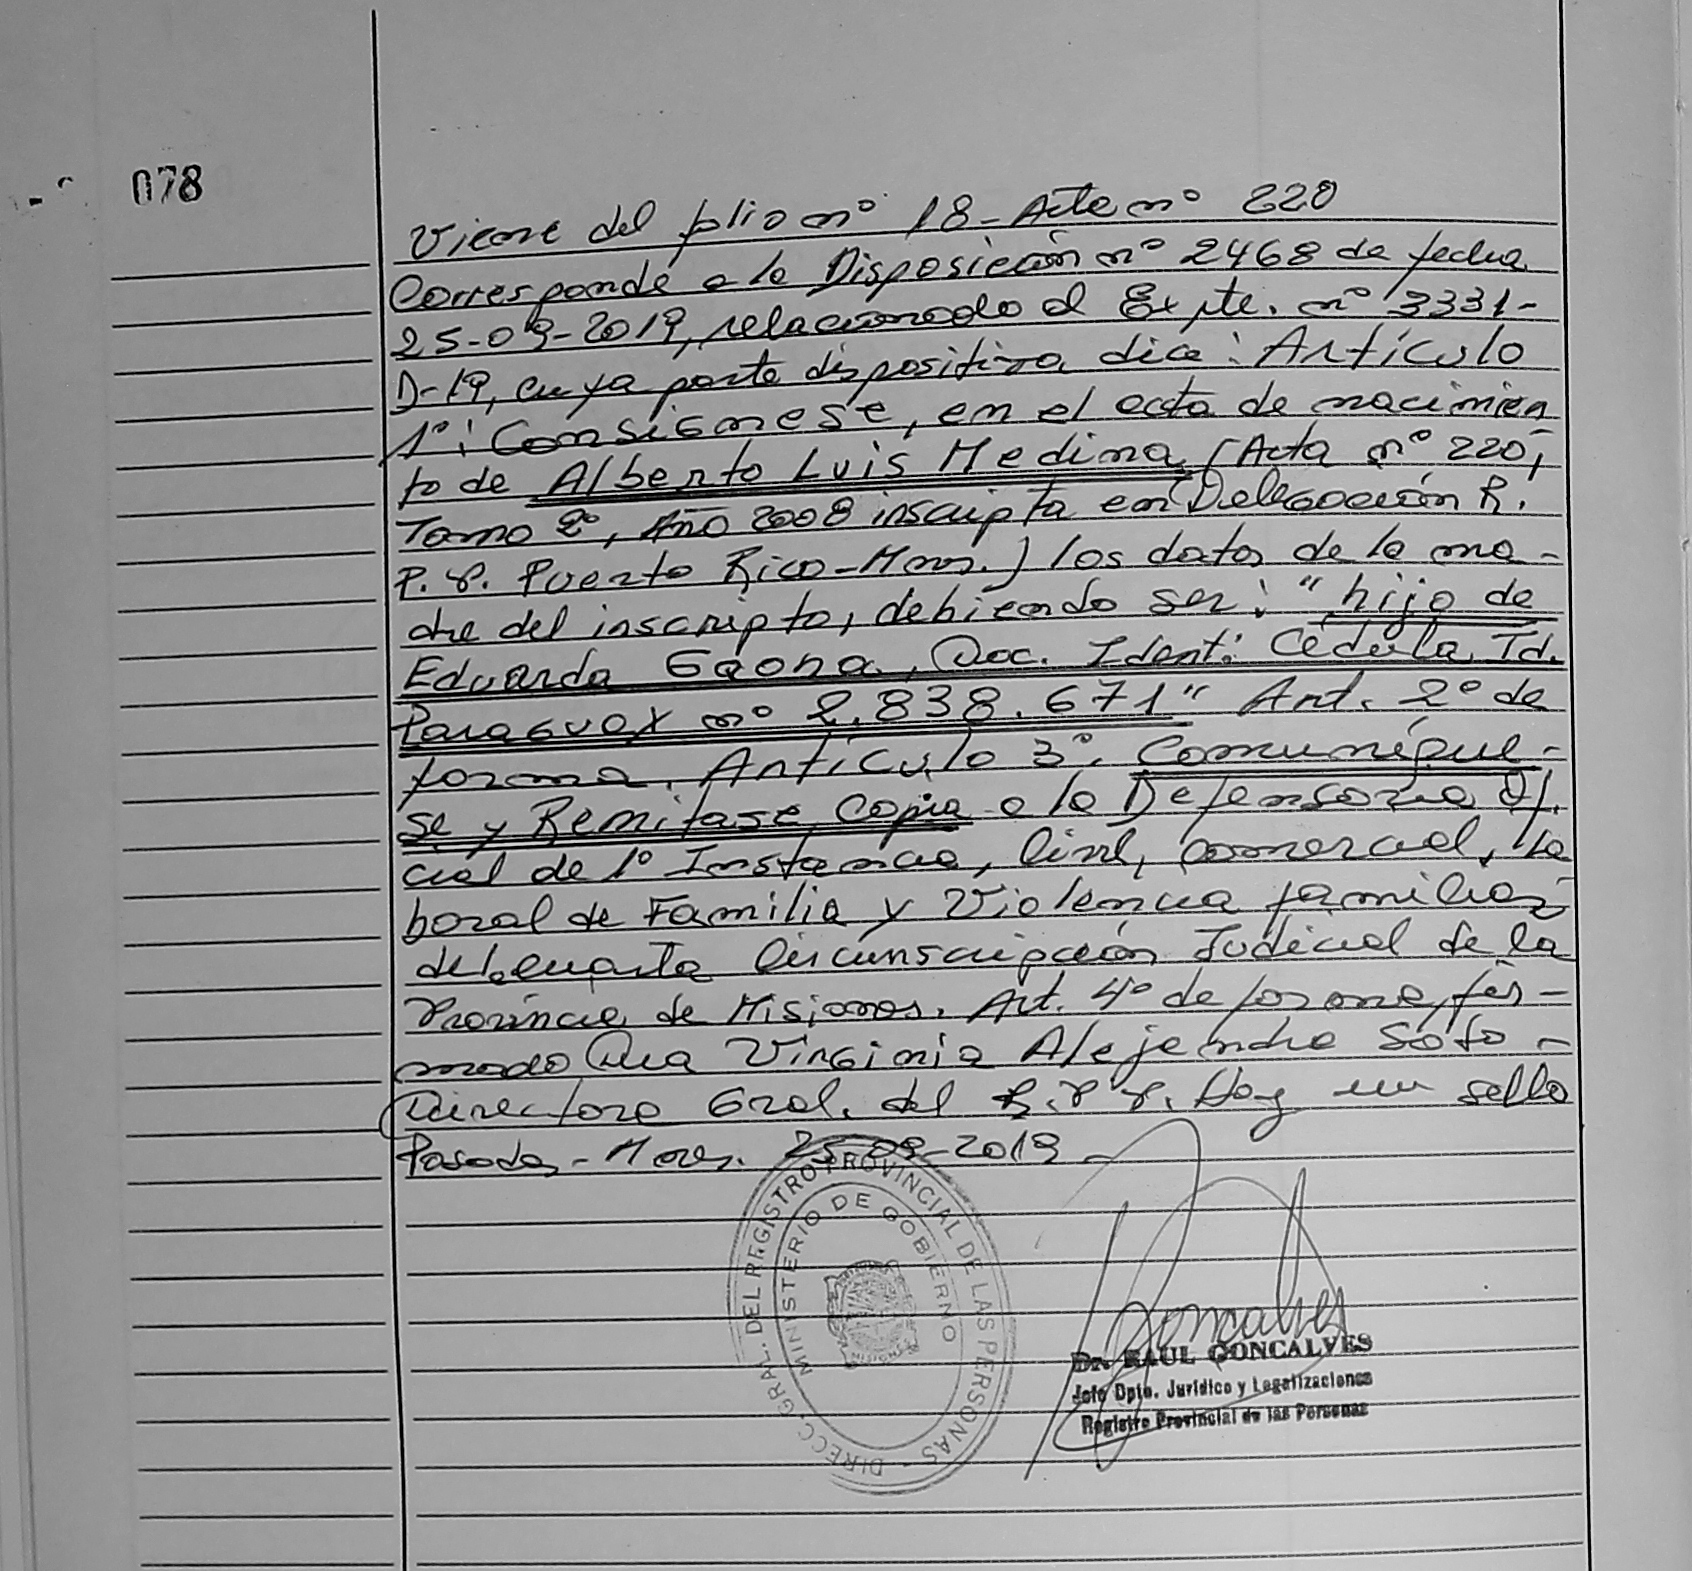 078
Viene del folio nº 18 - Acta nº 220
Corresponde a la Disposición nº 2468 de fecha
25-09-2019, relacionado al Expte. nº 3331-
D-19, cuya parte dispositiva dice: Artículo
1º: Consígnese, en el acta de nacimien
to de Alberto Luis Medina (Acta nº 220,
Tomo 2º, Año 2008 inscripta en Delegación R.
P. P. Puerto Rico-Mnes.) los datos de la ma-
dre del inscripto, debiendo ser: "hijo de
Eduarda Gaona, Doc. Ident: Cédula Id.
Paraguay nº 2.838.671" Art. 2º de
forma. Artículo 3º. Comuníque-
se y Remítase Copia a la Defensoría Ofi.
cial de 1º Instancia, Civil, Comercial, La
boral de Familia y Violencia familiar
de la cuarta Circunscripción Judicial de la
Provincia de Misiones. Art. 4º de forma, fir-
mado Dra Virginia Alejandra Soto -
Directora Gral. del R.P.P. Hay un sello
Posadas - Mnes. 25-09-2019
DIRECC. GRAL. DEL REGISTRO PROVINCIAL DE LAS PERSONAS -
MINISTERIO DE GOBIERNO
Goncalves
Dr. RAUL GONCALVES
Jefe Dpto. Jurídico y Legalizaciones
Registro Provincial de las Personas